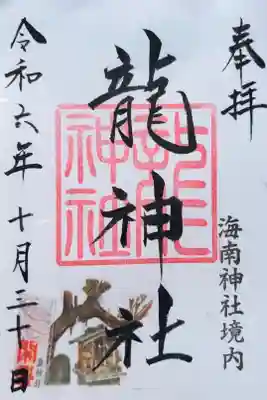 奉拝
海南神社境内
龍神社
龍神社
令和六年十月三十日